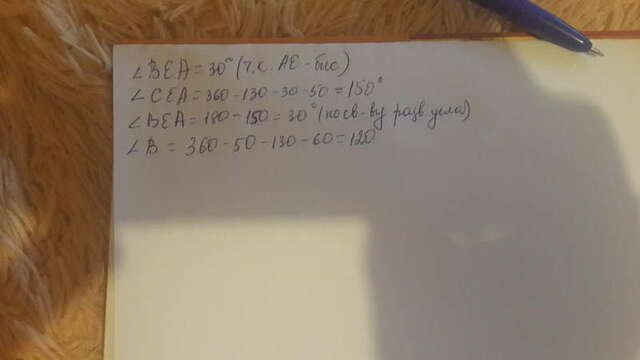 ∠BEA = 30° (т.к. AE - бис)
∠CEA = 360 - 130 - 30 - 50 = 150°
∠BEA = 180 - 150 = 30° (по св-ву разв. угла)
∠B = 360 - 50 - 130 - 60 = 120°